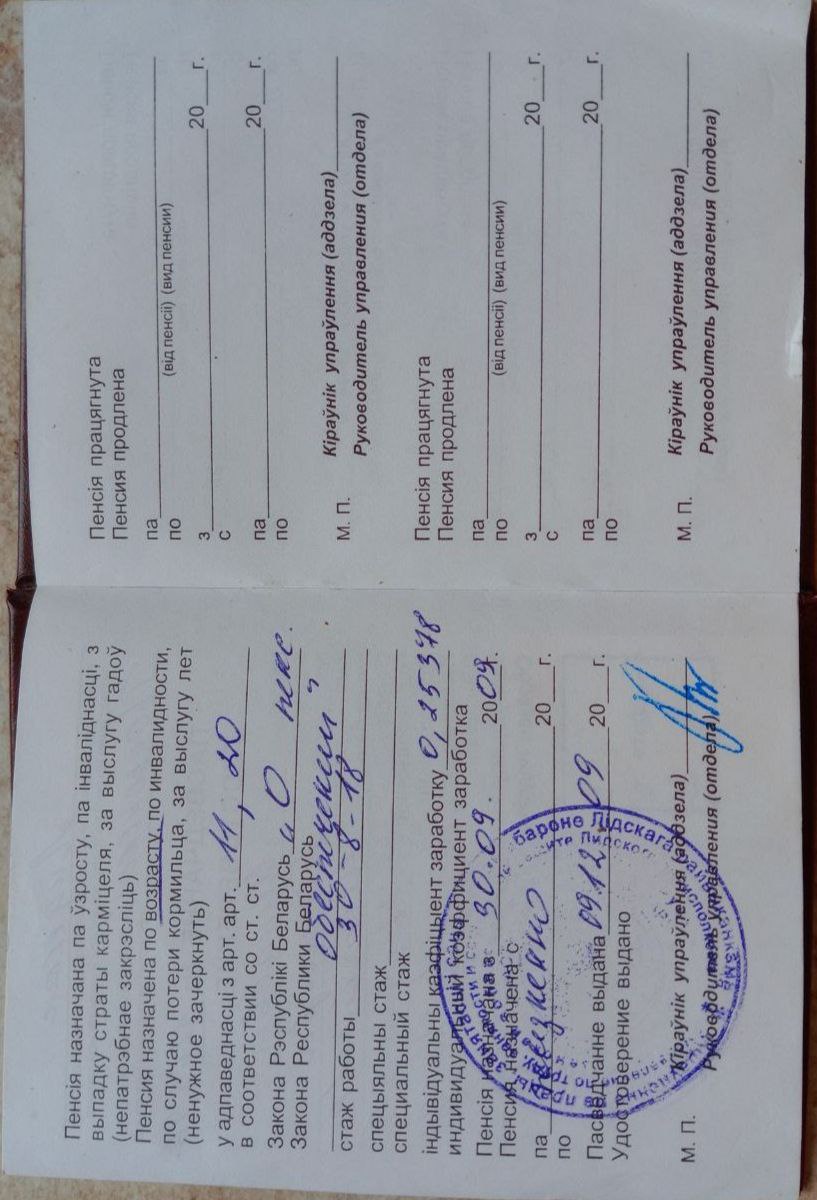 Пенсія назначана па ўзросту, па інваліднасці, з
выпадку страты карміцеля, за выслугу гадоў
(непатрэбнае закрэсліць)
Пенсия назначена по возрасту, по инвалидности,
по случаю потери кормильца, за выслугу лет
(ненужное зачеркнуть)
у адпаведнасці з арт. арт. 11, 20
в соответствии со ст. ст.
Закона Рэспублікі Беларусь „О пенс.
Закона Республики Беларусь
обеспечении"
стаж работы 30-8-18
спецыяльны стаж
специальный стаж
індывідуальны каэфіцыент заработку 0,25378
индивидуальный коэффициент заработка
Пенсія назначана з 30.09. 2009.
Пенсия назначена с
па пожизненно 20 г.
по
Пасведчанне выдана 09.12.09 20 г.
Удостоверение выдано
М. П. Кіраўнік упраўлення (аддзела)
Руководитель управления (отдела)
Пенсія працягнута
Пенсия продлена
па
по
(від пенсіі) (вид пенсии)
з 20 г.
с
па 20 г.
по
М. П. Кіраўнік упраўлення (аддзела)
Руководитель управления (отдела)
Пенсія працягнута
Пенсия продлена
па
по
(від пенсіі) (вид пенсии)
з 20 г.
с
па 20 г.
по
М. П. Кіраўнік упраўлення (аддзела)
Руководитель управления (отдела)